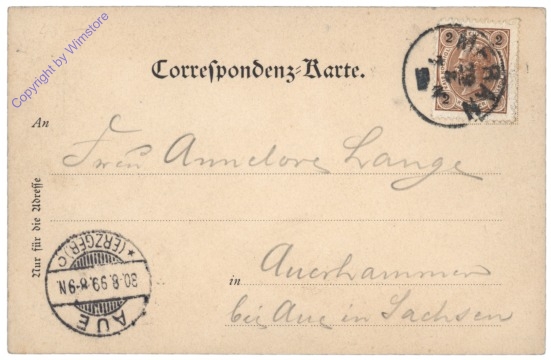 Copyright by Wimstore
Correspondenz-Karte.
2 2
MERAN
2
An
Frau Annelore Lange
Nur für die Adresse
in Auerhammer
bei Aue in Sachsen
AUE
30.8.99.8-9N.
*(ERZGEB)C